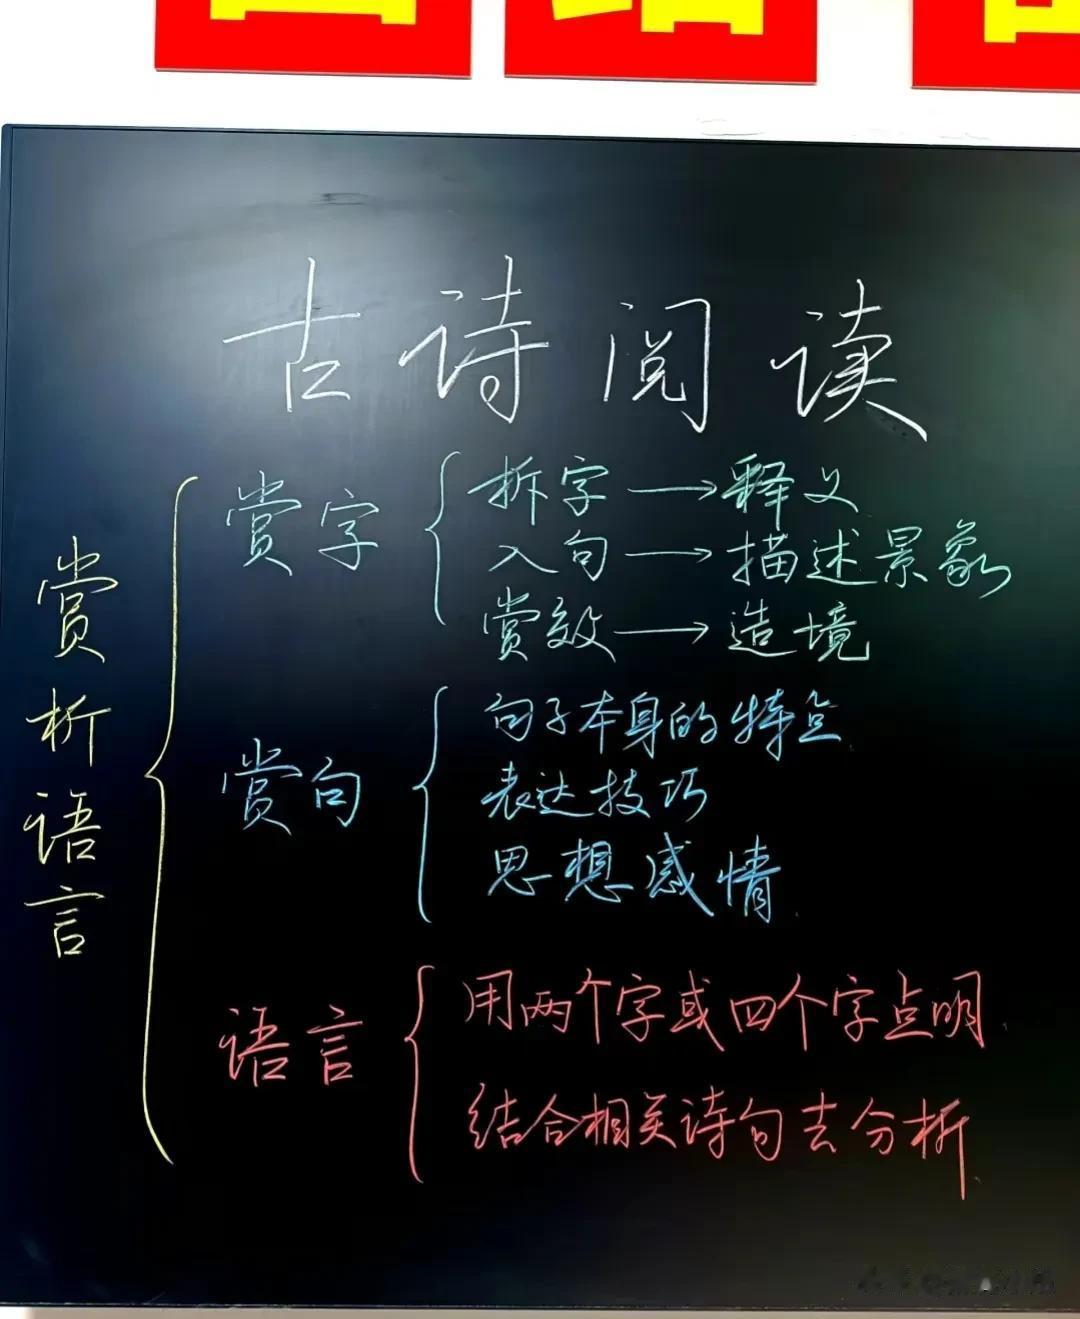 古诗阅读
赏析语言
赏字
拆字→释义
入句→描述景象
赏效→造境
赏句
句子本身的特点
表达技巧
思想感情
语言
用两个字或四个字点明
结合相关诗句去分析